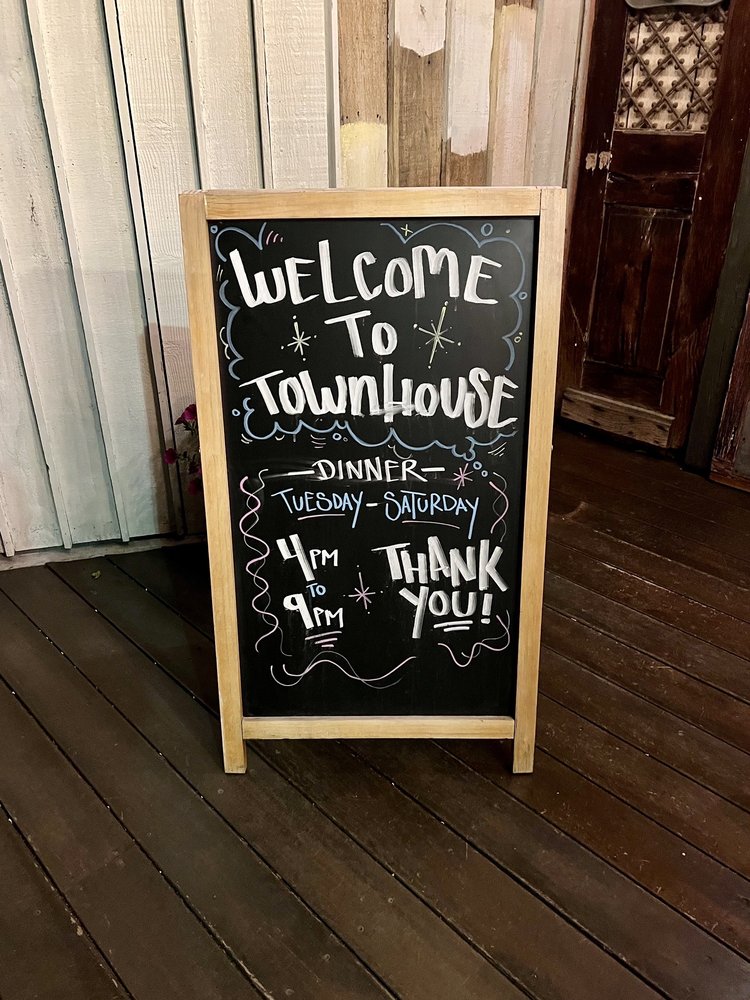 WELCOME
TO
TOWNHOUSE
—DINNER—
TUESDAY - SATURDAY
4PM
TO
9PM
THANK
YOU!